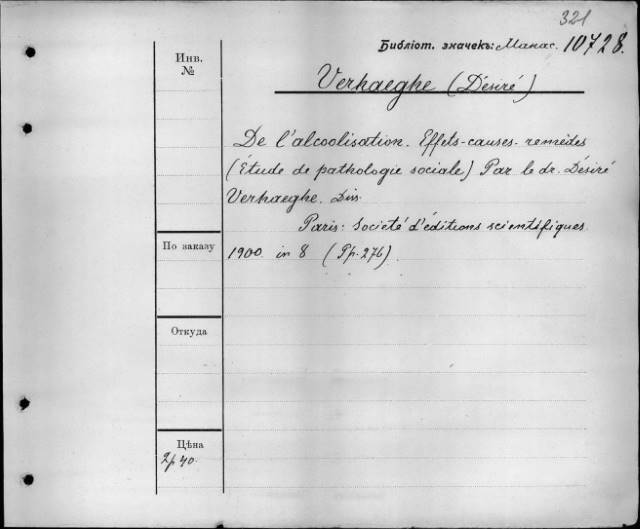 321
Библіот. значекъ: Манас. 10728.
Инв.
№
Verhaeghe (Désiré)
De l'alcoolisation. Effets-causes-remèdes
(Étude de pathologie sociale) Par le dr. Désiré
Verhaeghe. Diss.
Paris: Societé d'éditions scientifiques.
По заказу
1900. in 8 (Pp. 276).
Откуда
Цѣна
2р 40